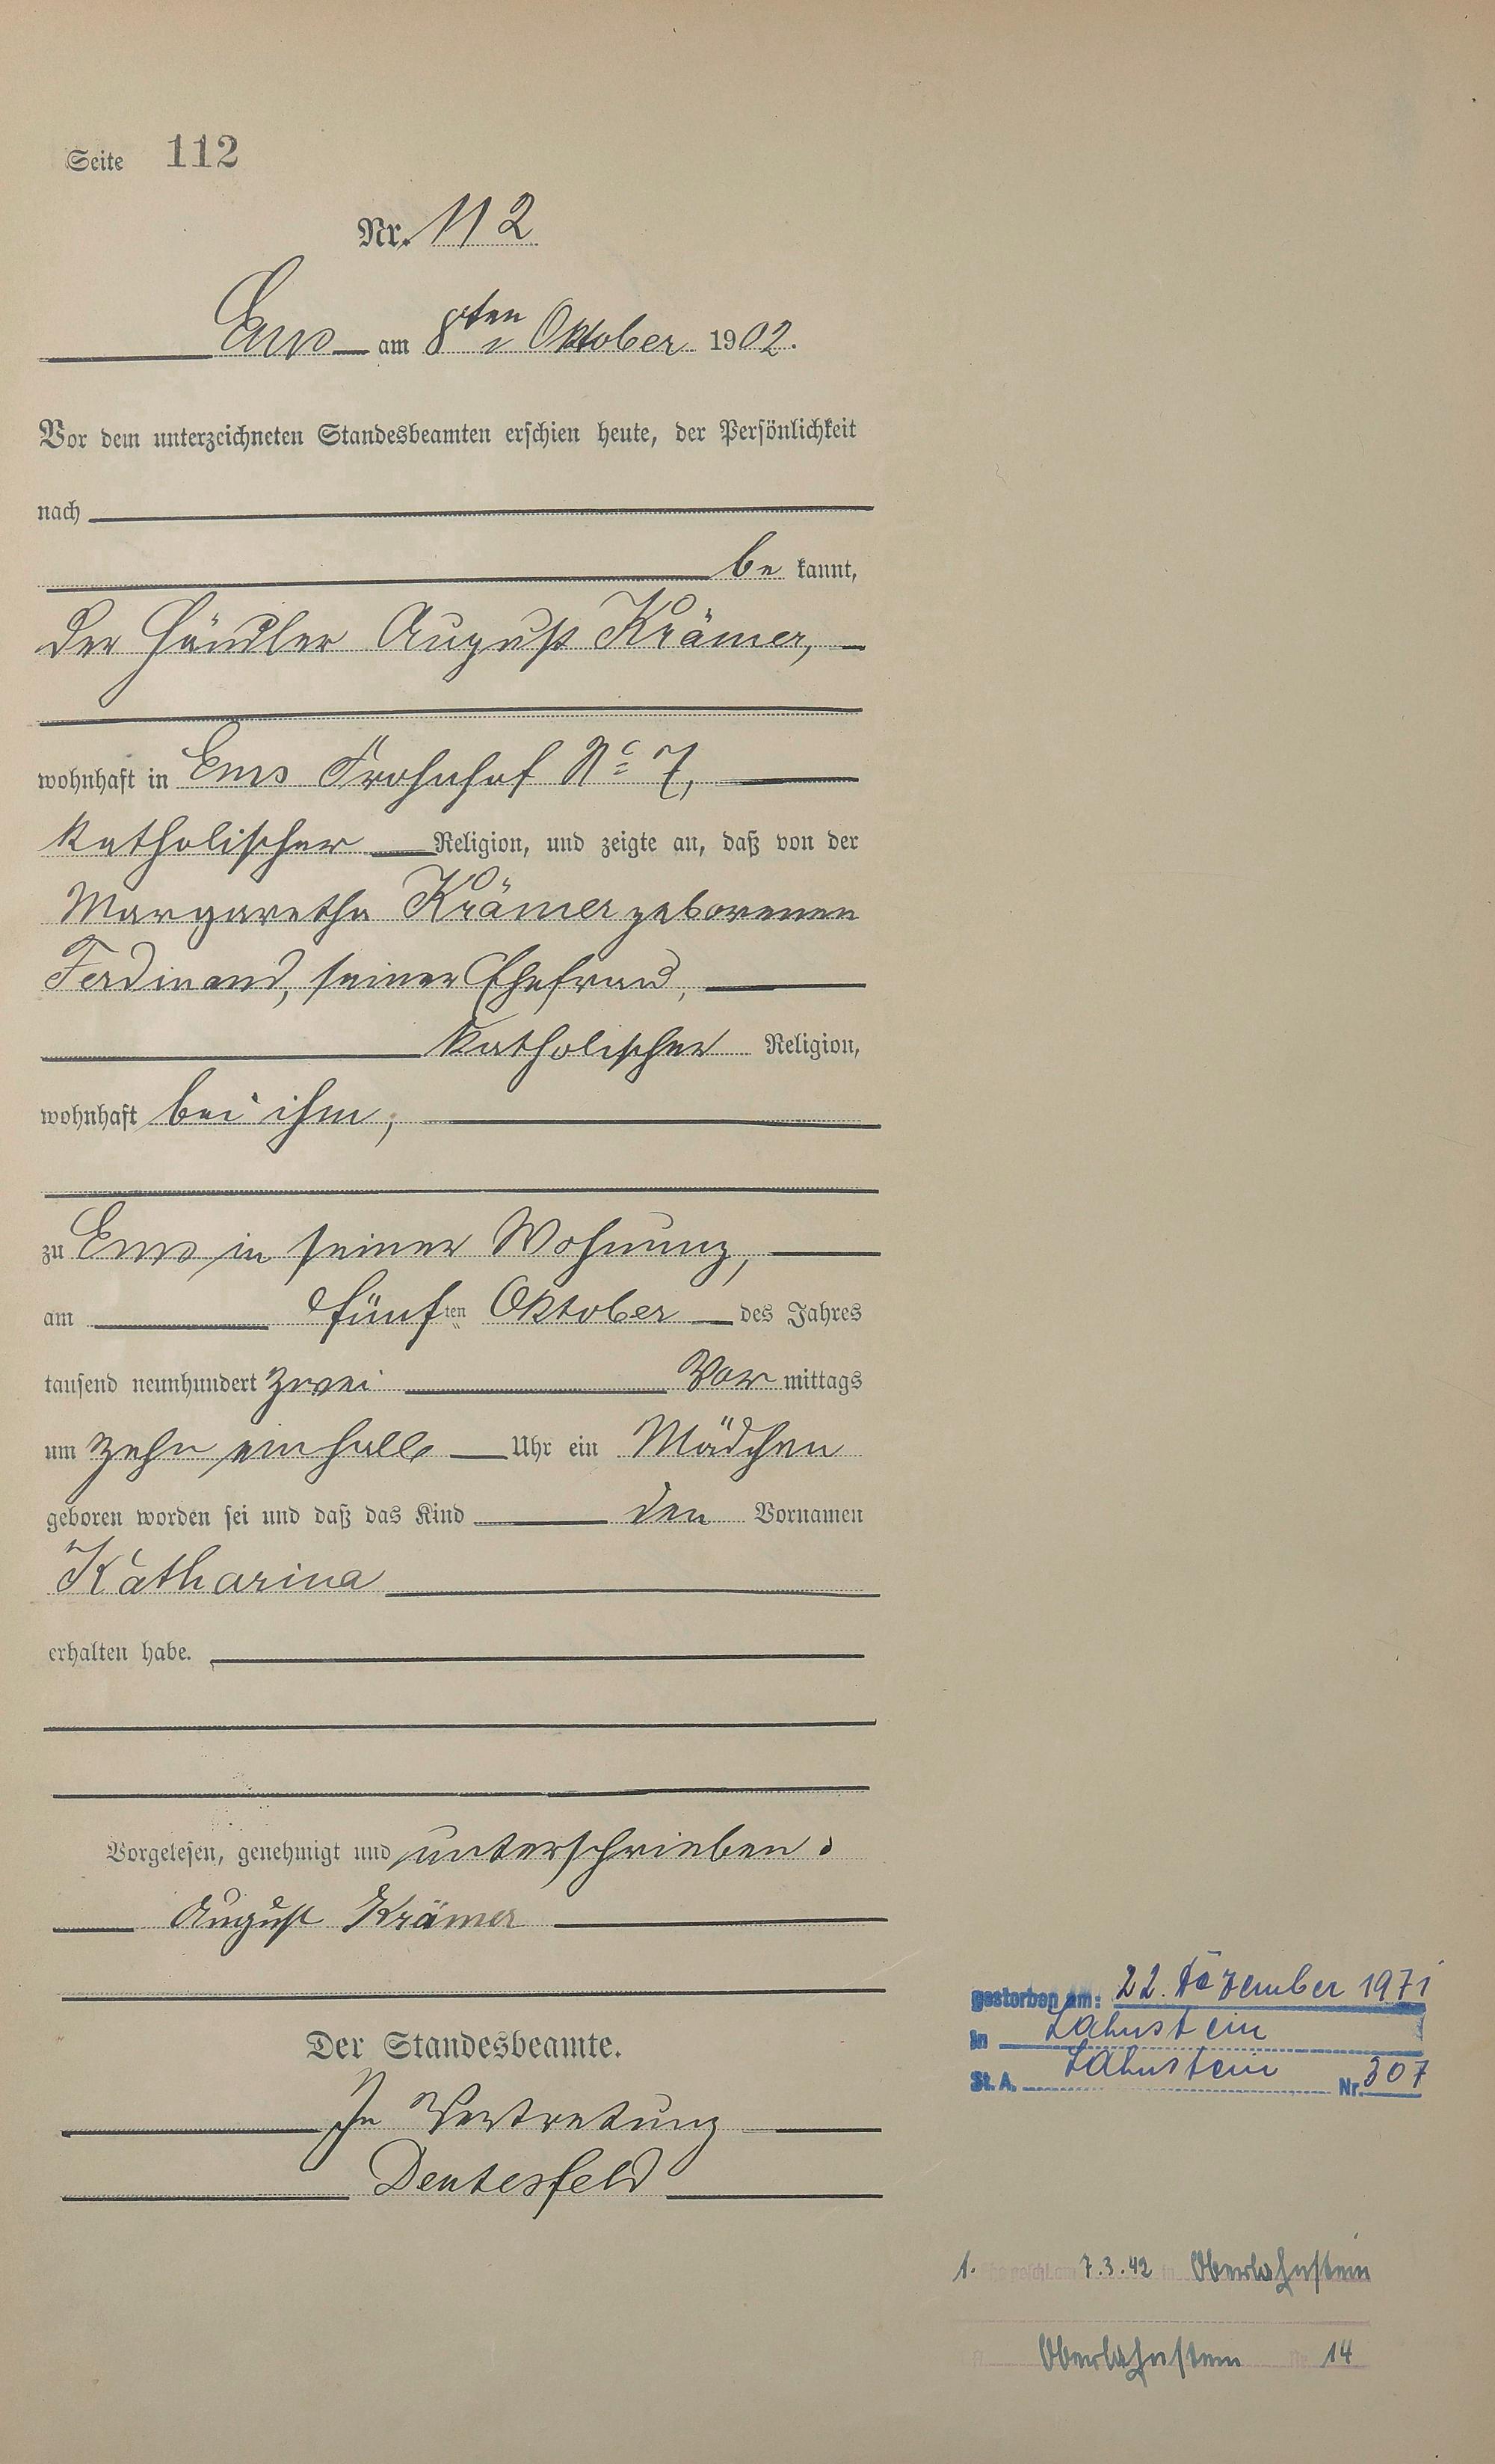 Seite 112
Nr. 112
Ems am 8ten Oktober 1902.
Vor dem unterzeichneten Standesbeamten erschien heute, der Persönlichkeit
nach
be kannt,
der Händler August Krämer,
wohnhaft in Ems Frohnhof No 7,
katholischer Religion, und zeigte an, daß von der
Margaretha Krämer geborenen
Ferdinand, seiner Ehefrau,
katholischer Religion,
wohnhaft bei ihm,
zu Ems in seiner Wohnung,
am fünf ten Oktober des Jahres
tausend neunhundert zwei Vor mittags
um zehn ein halb Uhr ein Mädchen
geboren worden sei und daß das Kind den Vornamen
Katharina
erhalten habe.
Vorgelesen, genehmigt und unterschrieben.
August Krämer
Der Standesbeamte.
In Vertretung
Deutesfeld
gestorben am: 22. Dezember 1971
in Lahnstein
St. A. Lahnstein Nr. 307
1. Ehe geschl. am 7.3.42 in Oberlahnstein
Oberlahnstein Nr. 14